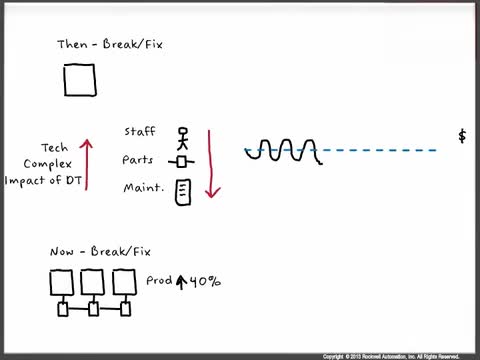 Then - Break/Fix
Staff
$
Tech
Parts
Complex
Impact of DT
Maint.
Now - Break/Fix
Prod ↑ 40%
Copyright © 2013 Rockwell Automation, Inc. All Rights Reserved.